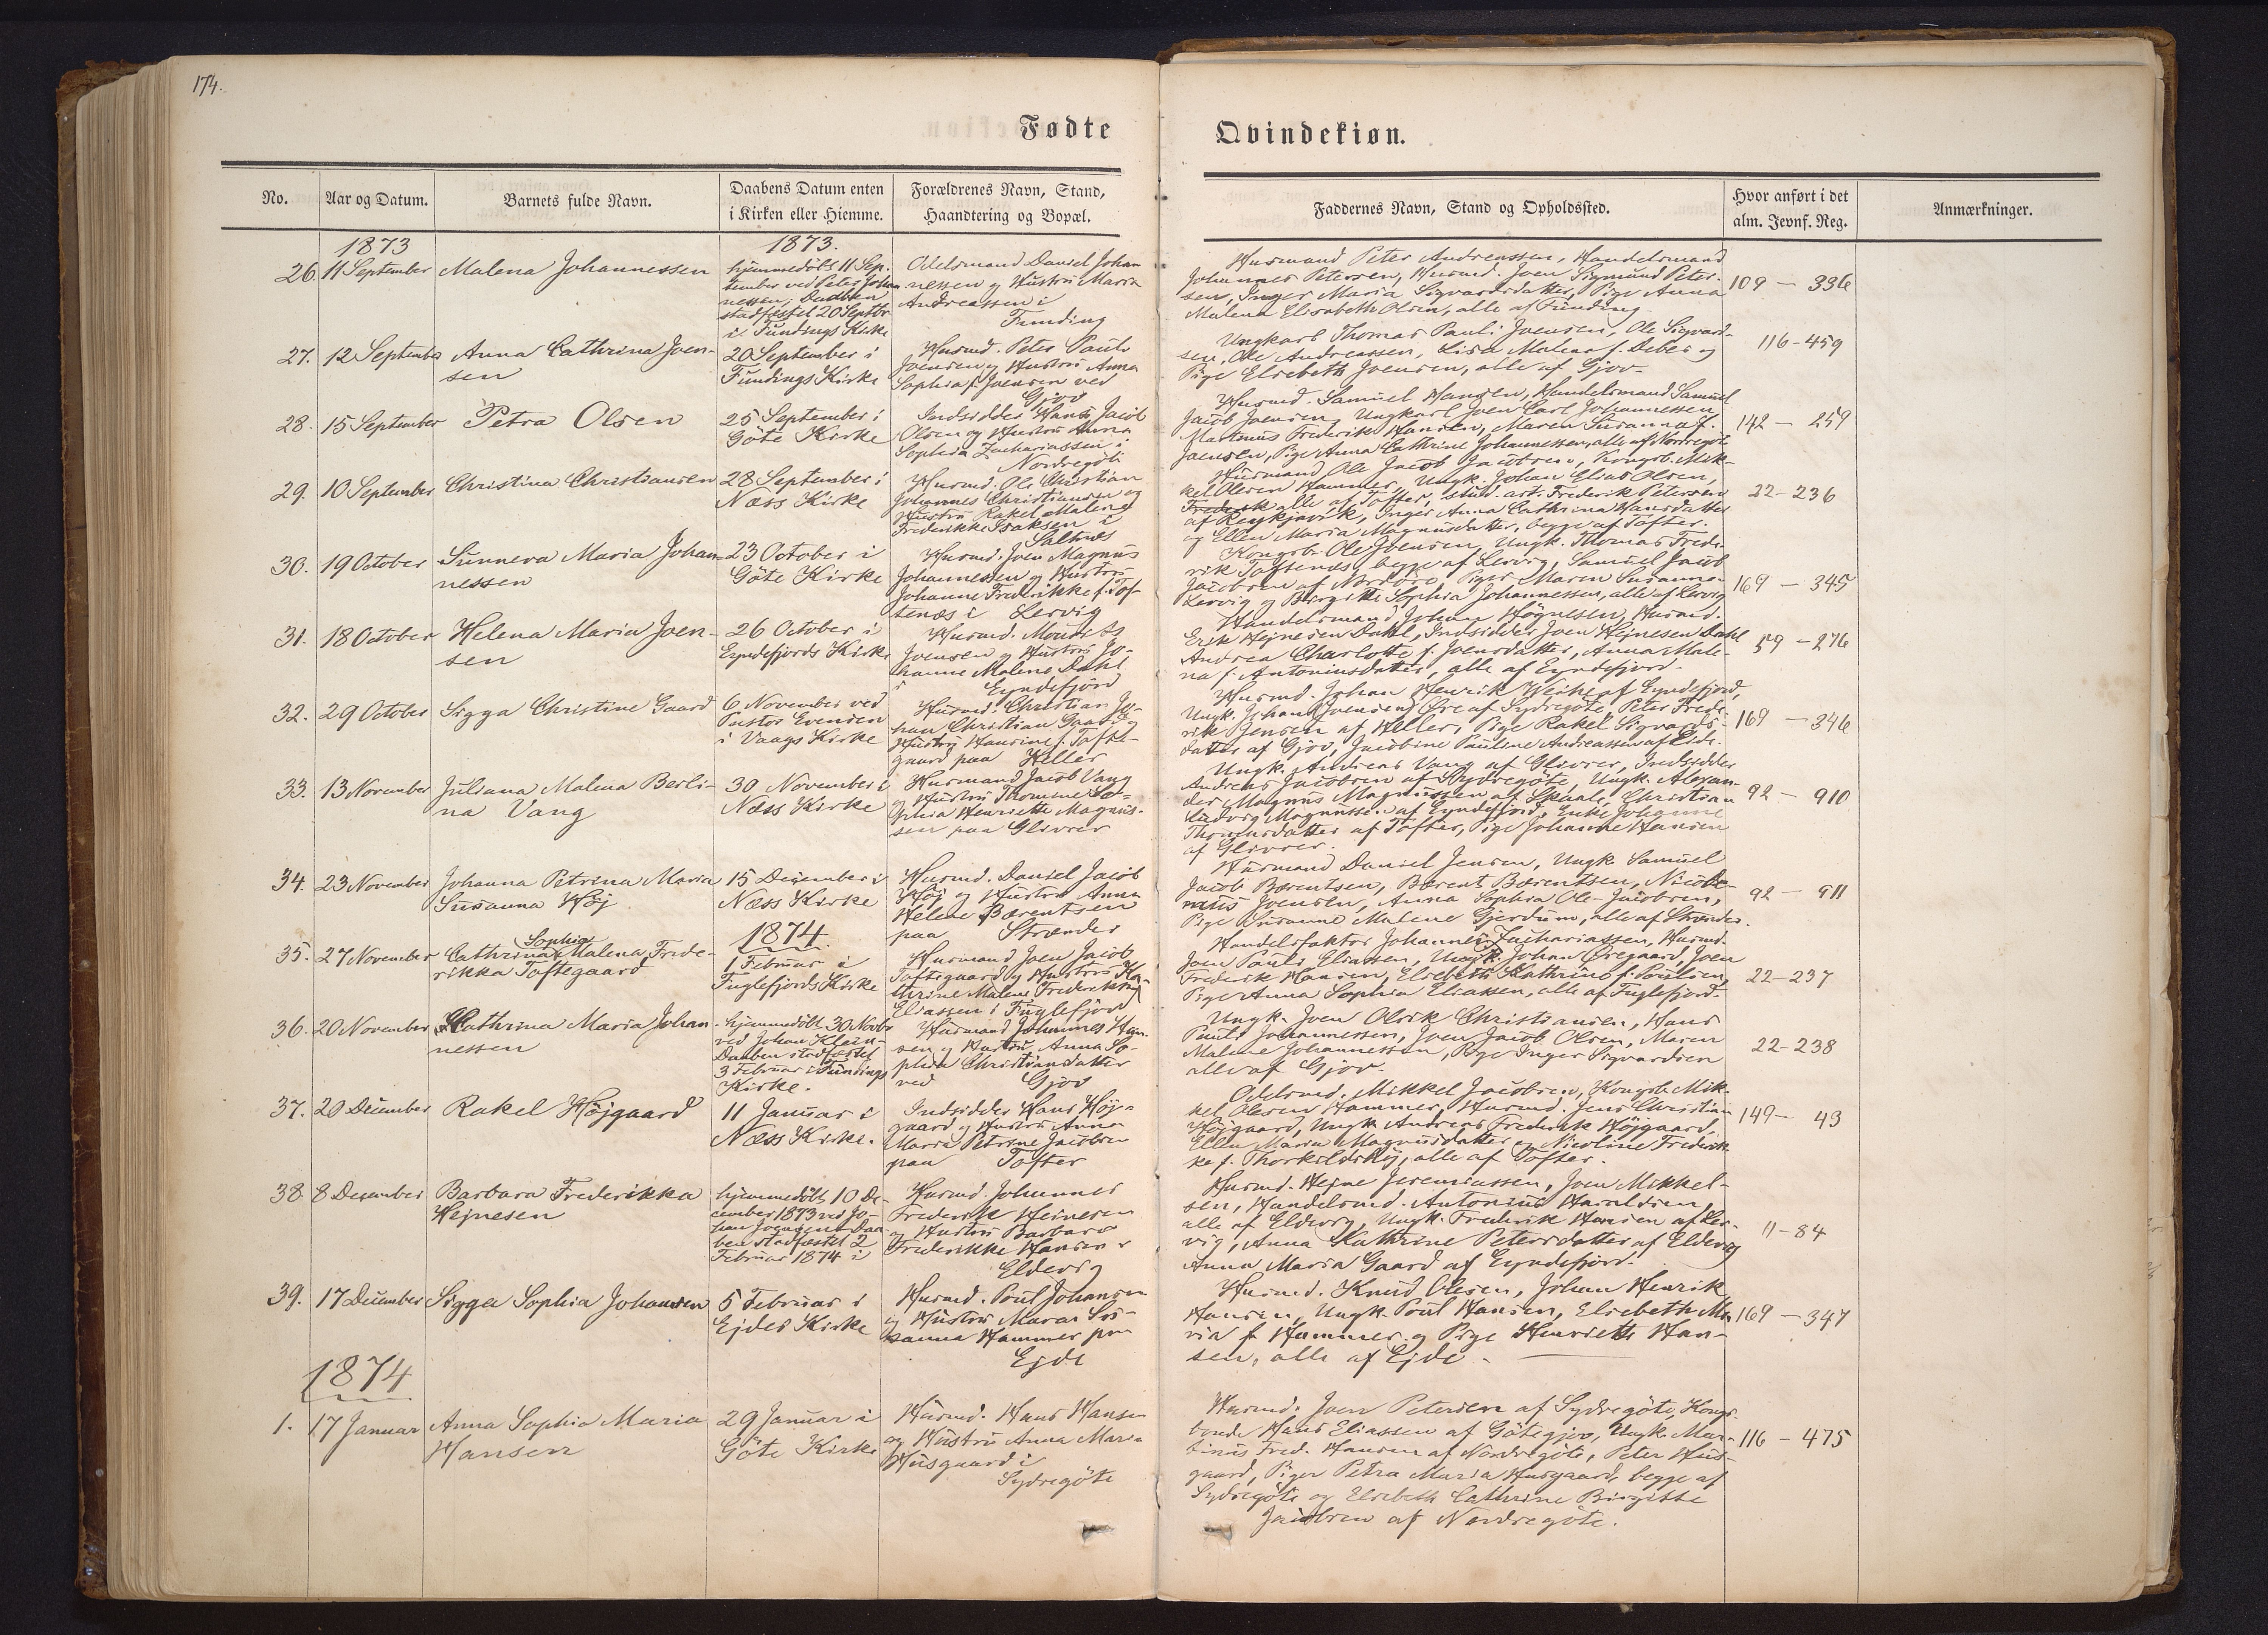 174.
Fødte
Qvindekiøn.
No.
Aar og Datum.
Barnets fulde Navn.
Daabens Datum enten
i Kirken eller Hiemme.
Forældrenes Navn, Stand,
Haandtering og Bopæl.
Faddernes Navn, Stand og Opholdssted.
Hvor anført i det
alm. Jevnf. Reg.
Anmærkninger.
1873
1873.
26. 11 September
Malena Johannessen
hjemmedöbt 11 Sep-
tember ved Peter Johan
nessen; Daaben
stadfæstet 20 Septbr
i Fundings Kirke
Odelsmand Daniel Johan
nessen og Hustru Maria
Andreassen i
Funding
Husmand Peter Andreassen, Handelsmand
Johannes Petersen, Husmd. Joen Sigmund Peter-
sen, Inger Maria Sigvardsdatter, Pige Anna
Malena Elisabeth Olsen, alle af Funding.
109 - 336
27. 12 September
Anna Cathrina Joen-
sen
20 September i
Fundings Kirke
Husmd. Peter Pauli
Joensen og Hustru Anna
Sophia f. Joensen ved
Gjov
Ungkarl Thomas Pauli Joensen, Ole Sigvard-
sen, Ole Andreassen, Lisa Malena f. Debes og
Pige Elsebeth Joensen, alle af Gjov.
116-459
28. 15 September
Petra Olsen
25 September i
Göte Kirke
Indsidder Hans Jacob
Olsen og Hustru Anna
Sophia Zachariassen i
Nordregöte
Husmd. Samuel Hansen, Handelsmand Samuel
Jacob Joensen, Ungkarl Joen Carl Johannessen
Martinus Frederik Hansen, Maren Susanna f.
Joensen, Pige Anna Cathrine Johannessen, alle af Nordregöte
142 - 259
29. 10 September
Christina Christiansen
28 September i
Næss Kirke
Husmd. Ole Christian
Johannes Christiansen og
Hustru Rakel Malene
Frederikke Isaksen i
Saltnæs
Husmand Ole Jacob Jacobsen, Kongsb. Mik-
kel Olesen Hammer, Ungk. Johan Elias Olsen,
Frederik alle af Tofter, stud. art. Frederik Petersen
af Reykjavik, Inger Anna Cathrina Hansdatter
og Ellen Maria Magnusdatter, begge af Tofter.
22-236
30. 19 October
Sunneva Maria Johan-
nessen
23 October i
Göte Kirke
Husmd. Joen Magnus
Johannessen og Hustru
Johanne Frederikke f. Tof-
tenæs i Lervig
Kongsb. Ole Joensen, Ungk. Thomas Frede-
rik Toftenæs, begge af Lervig, Samuel Jacob
Jacobsen af Nordöre, Piger Maren Susanna
Lervig og Birgitte Sophia Johannessen, alle af Lervig
169 - 345
31. 18 October
Helena Maria Joen-
sen
26 October i
Eyndefjords Kirke
Husmd. Mourits
Joensen og Hustru Jo-
hanne Malene Dahl
i Eyndefjord
Handelsmand Johan Högnesen, Husmd.
Erik Hejnesen Dahl, Indsidder Joen Hejnesen Dahl
Andrea Charlotte f. Joensdatter, Anna Male-
na f. Antoniusdatter, alle af Eyndefjord.
59 - 276
32. 29 October
Sigga Christine Gaard
6 November ved
Pastor Evensen
i Vaags Kirke
Husmd. Christian Jo-
han Christian Gaard og
Hustru Hansine f. Tofte-
gaard paa Heller
Husmd. Johan Henrik Weihe af Eyndefjord,
Ungk. Johan Joensen Öre af Sydregöte, Peter Frede-
rik Jensen af Heller, Pige Rakel Sigvards-
datter af Gjov, Jacobine Pauline Andreassen af Eide.
169 - 346
33. 13 November
Juliana Malena Berli-
na Vang
30 November i
Næss Kirke
Husmand Jacob Vang
og Hustru Thomine So-
phia Henriette Magnus-
sen paa Glivrer
Ungk. Andreas Vang af Glivrer, Indsidder
Andreas Jacobsen af Sydregöte, Ungk. Alexan-
der Magnus Magnussen af Skaale, Christian
Ludvig Magnussen af Eyndefjord, Enke Johanne
Thomasdatter af Tofter, Pige Johanne Hansen
af Glivrer.
92 - 910
34. 23 November
Johanna Petrina Maria
Susanna Höj
15 December i
Næss Kirke
Husmd. Daniel Jacob
Höj og Hustru Anna
Helene Bærentsen
paa Strænder
Husmand Daniel Jensen, Ungk. Samuel
Jacob Bærentsen, Bærent Bærentsen, Nicode-
mus Joensen, Anna Sophia Ole-Jacobsen,
Pige Susanne Malene Gjerdum, alle af Strænder.
92 - 911
1874.
35. 27 November
Cathrina Sophia Malena Frede-
rikka Toftegaard
1 Februar i
Fuglefjords Kirke
Husmand Joen Jacob
Toftegaard og Hustru Ka
thrine Malene Frederikke
Eliassen i Fuglefjord
Handelsfaktor Johannes Zachariassen, Husmd.
Joen Pauli Eliassen, Ungk. Johan Öregaard, Joen
Frederik Hansen, Elsebeth Kathrine f. Poulsen,
Pige Anna Sophia Eliassen, alle af Fuglefjord.
22-237
36. 20 November
Cathrina Maria Johan-
nessen
hjemmedöbt 30 Novbr
ved Johan Klein-
Daaben stadfæstet
3 Februar i Fundings
Kirke.
Husmand Johannes Han-
sen og Hustru Anna So-
phia Christiansdatter
ved Gjov
Ungk. Joen Olsik Christiansen, Hans
Pauli Johannessen, Joen Jacob Olsen, Maren
Malene Johannessen, Pige Inger Sigvardsen
alle af Gjov.
22-238
37. 20 December
Rakel Höjgaard
11 Januar i
Næss Kirke.
Indsidder Hans Höj-
gaard og Hustru Anna
Maria Petrine Jacobsen
paa Tofter
Odelsmd. Mikkel Jacobsen, Kongsb. Mik-
kel Olesen Hammer, Husmd. Jens Christian
Höjgaard, Ungk. Andreas Frederik Höjgaard,
Ellen Maria Magnusdatter og Nicoline Frederik-
ke f. Thorkildshöj, alle af Tofter.
149 - 43
38. 8 December
Barbara Frederikka
Hejnesen
hjemmedöbt 10 De-
cember 1873 ved Jo-
han Joensen. Daa-
ben stadfæstet 2
Februar 1874 i
Husmd. Johannes
Frederik Heinesen
og Hustru Barbara
Frederikke Hansen i
Eldevig
Husmd. Hejne Jeremiassen, Joen Mikkel-
sen, Handelsmd. Antonius Haraldsen,
alle af Eldevig, Ungk. Frederik Hansen af Ler-
vig, Anna Kathrine Petersdatter af Eldevig
Anna Maria Gaard af Eyndefjord.
11-84
39. 17 December
Sigga Sophia Johansen
5 Februar i
Ejdes Kirke
Husmd. Poul Johansen
og Hustru Maria Su-
sanna Hammer paa
Ejde
Husmd. Knud Olesen, Johan Henrik
Hansen, Ungk. Poul Hansen, Elsebeth Ma-
ria f. Hammer og Pige Henriette Han-
sen, alle af Ejde.
169 - 347
1874
1. 17 Januar
Anna Sophia Maria
Hansen
29 Januar i
Göte Kirke
Husmd. Hans Hansen
og Hustru Anna Maria
Husgaard i
Sydregöte
Husmd. Joen Petersen af Sydregöte, Kongs-
bonde Hans Eliassen af Götegjov, Ungk. Mar-
tinus Fred. Hansen af Nordregöte, Peter Hus-
gaard, Piger Petra Maria Husgaard, begge af
Sydregöte og Elsebeth Cathrine Birgitte
Jacobsen af Nordregöte.
116 - 475